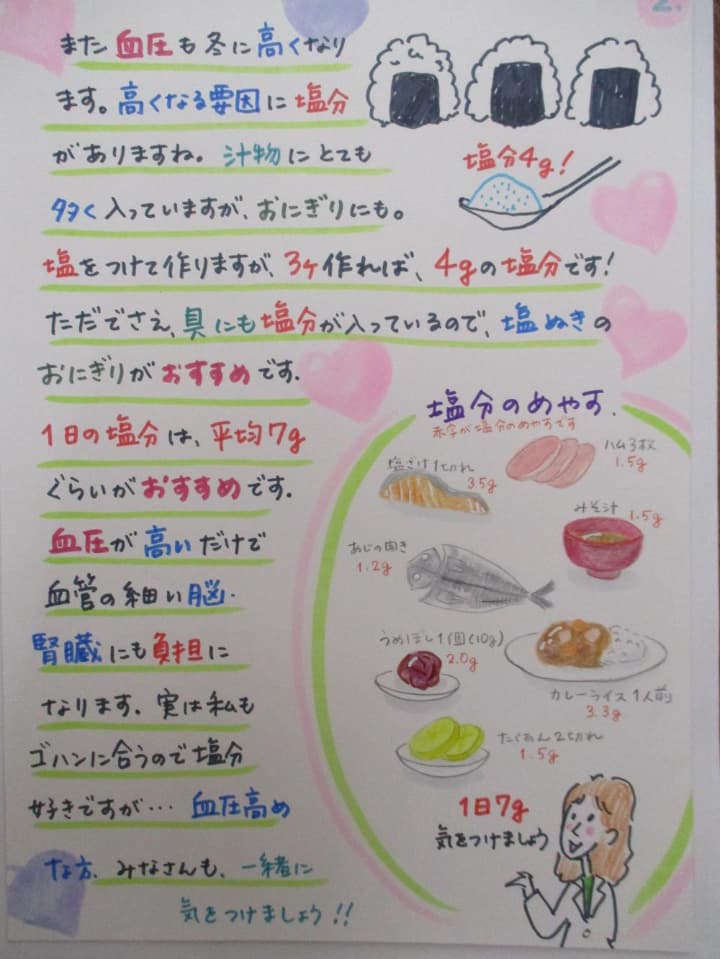 2.
また血圧も冬に高くなり
ます。高くなる要因に塩分
がありますね。汁物にとても
多く入っていますが、おにぎりにも。
塩をつけて作りますが、3ヶ作れば、4gの塩分です!
ただでさえ、具にも塩分が入っているので、塩ぬきの
おにぎりがおすすめです.
1日の塩分は、平均7g
ぐらいがおすすめです.
血圧が高いだけで
血管の細い脳・
腎臓にも負担に
なります、実は私も
ゴハンに合うので塩分
好きですが… 血圧高め
な方、みなさんも、一緒に
気をつけましょう!!
塩分4g!
塩分のめやす.
赤字が塩分のめやすです
ハム3枚
1.5g
塩ざけ1切れ
3.5g
みそ汁 1.5g
あじの開き
1.2g
うめぼし1個(10g)
2.0g
カレーライス1人前
3.3g
たくあん2切れ
1.5g
1日7g
気をつけましょう